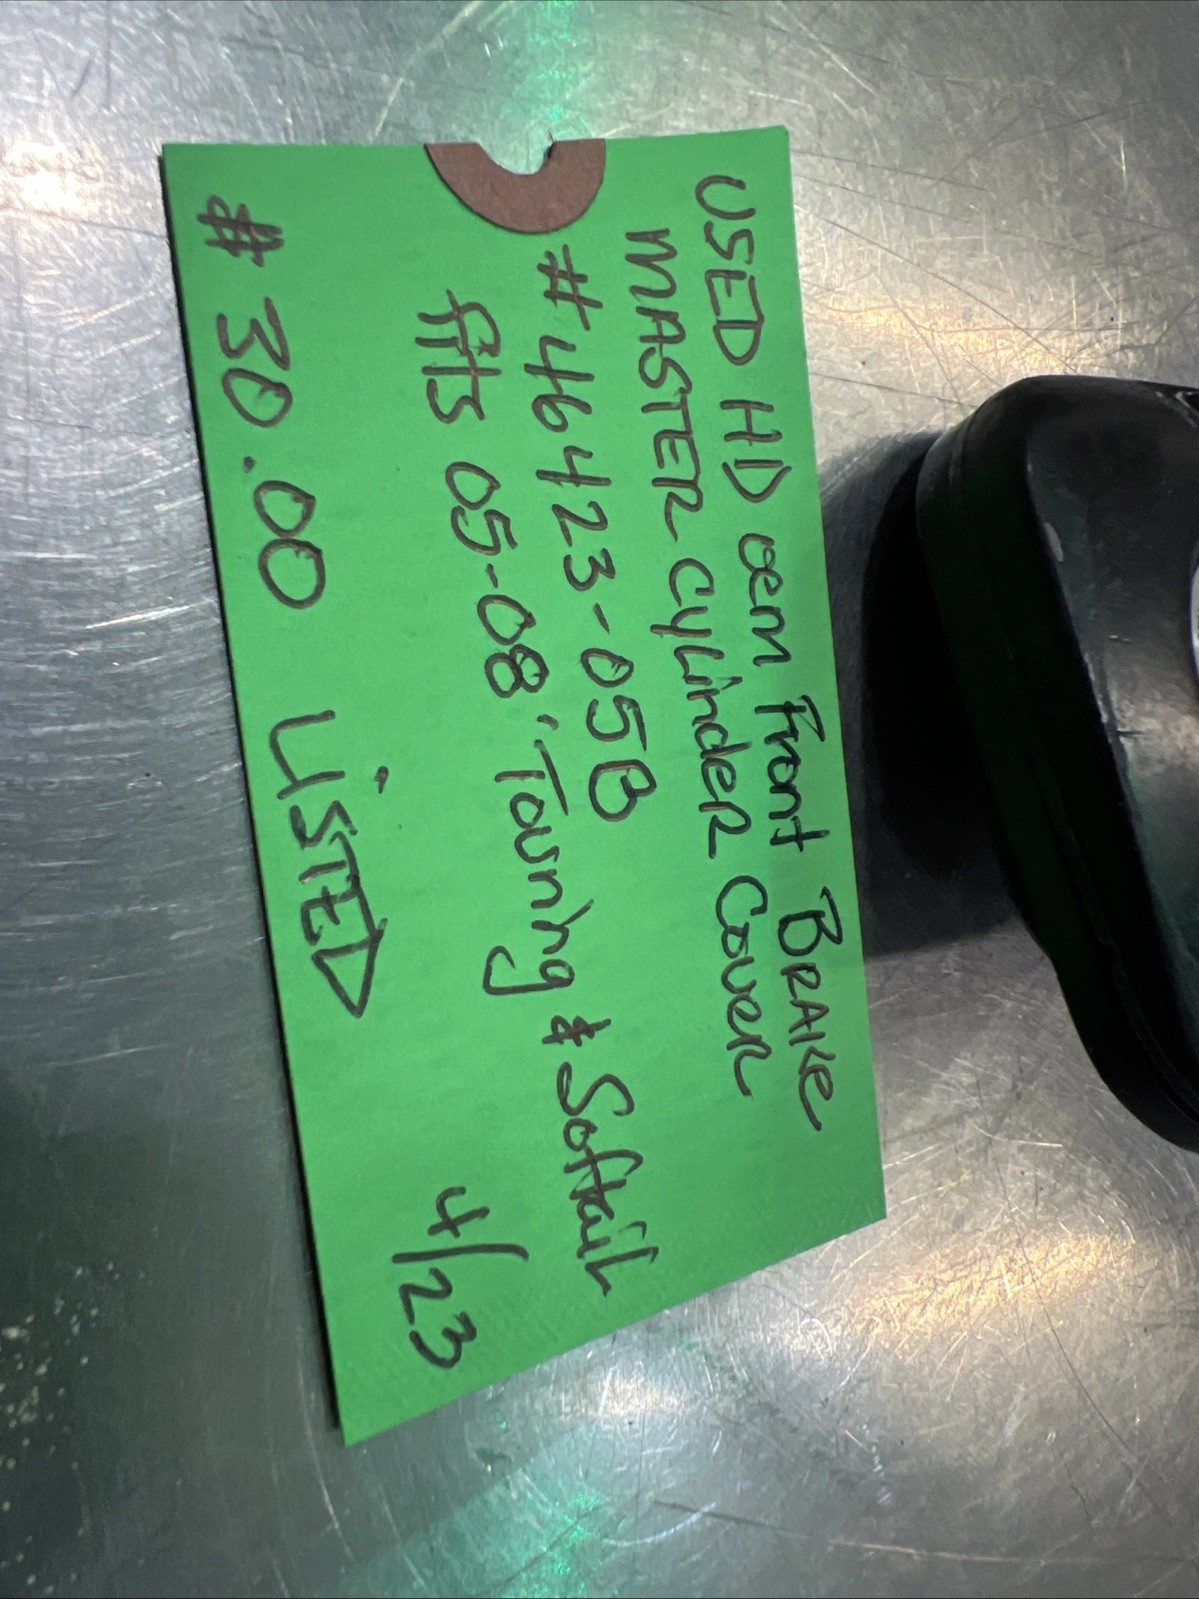 USED HD oem Front BRAKe
MASTER CYLinDER COVER
#46423-05B
fits 05-08' Touring & Softail
# 30.00 LiSTED
4/23